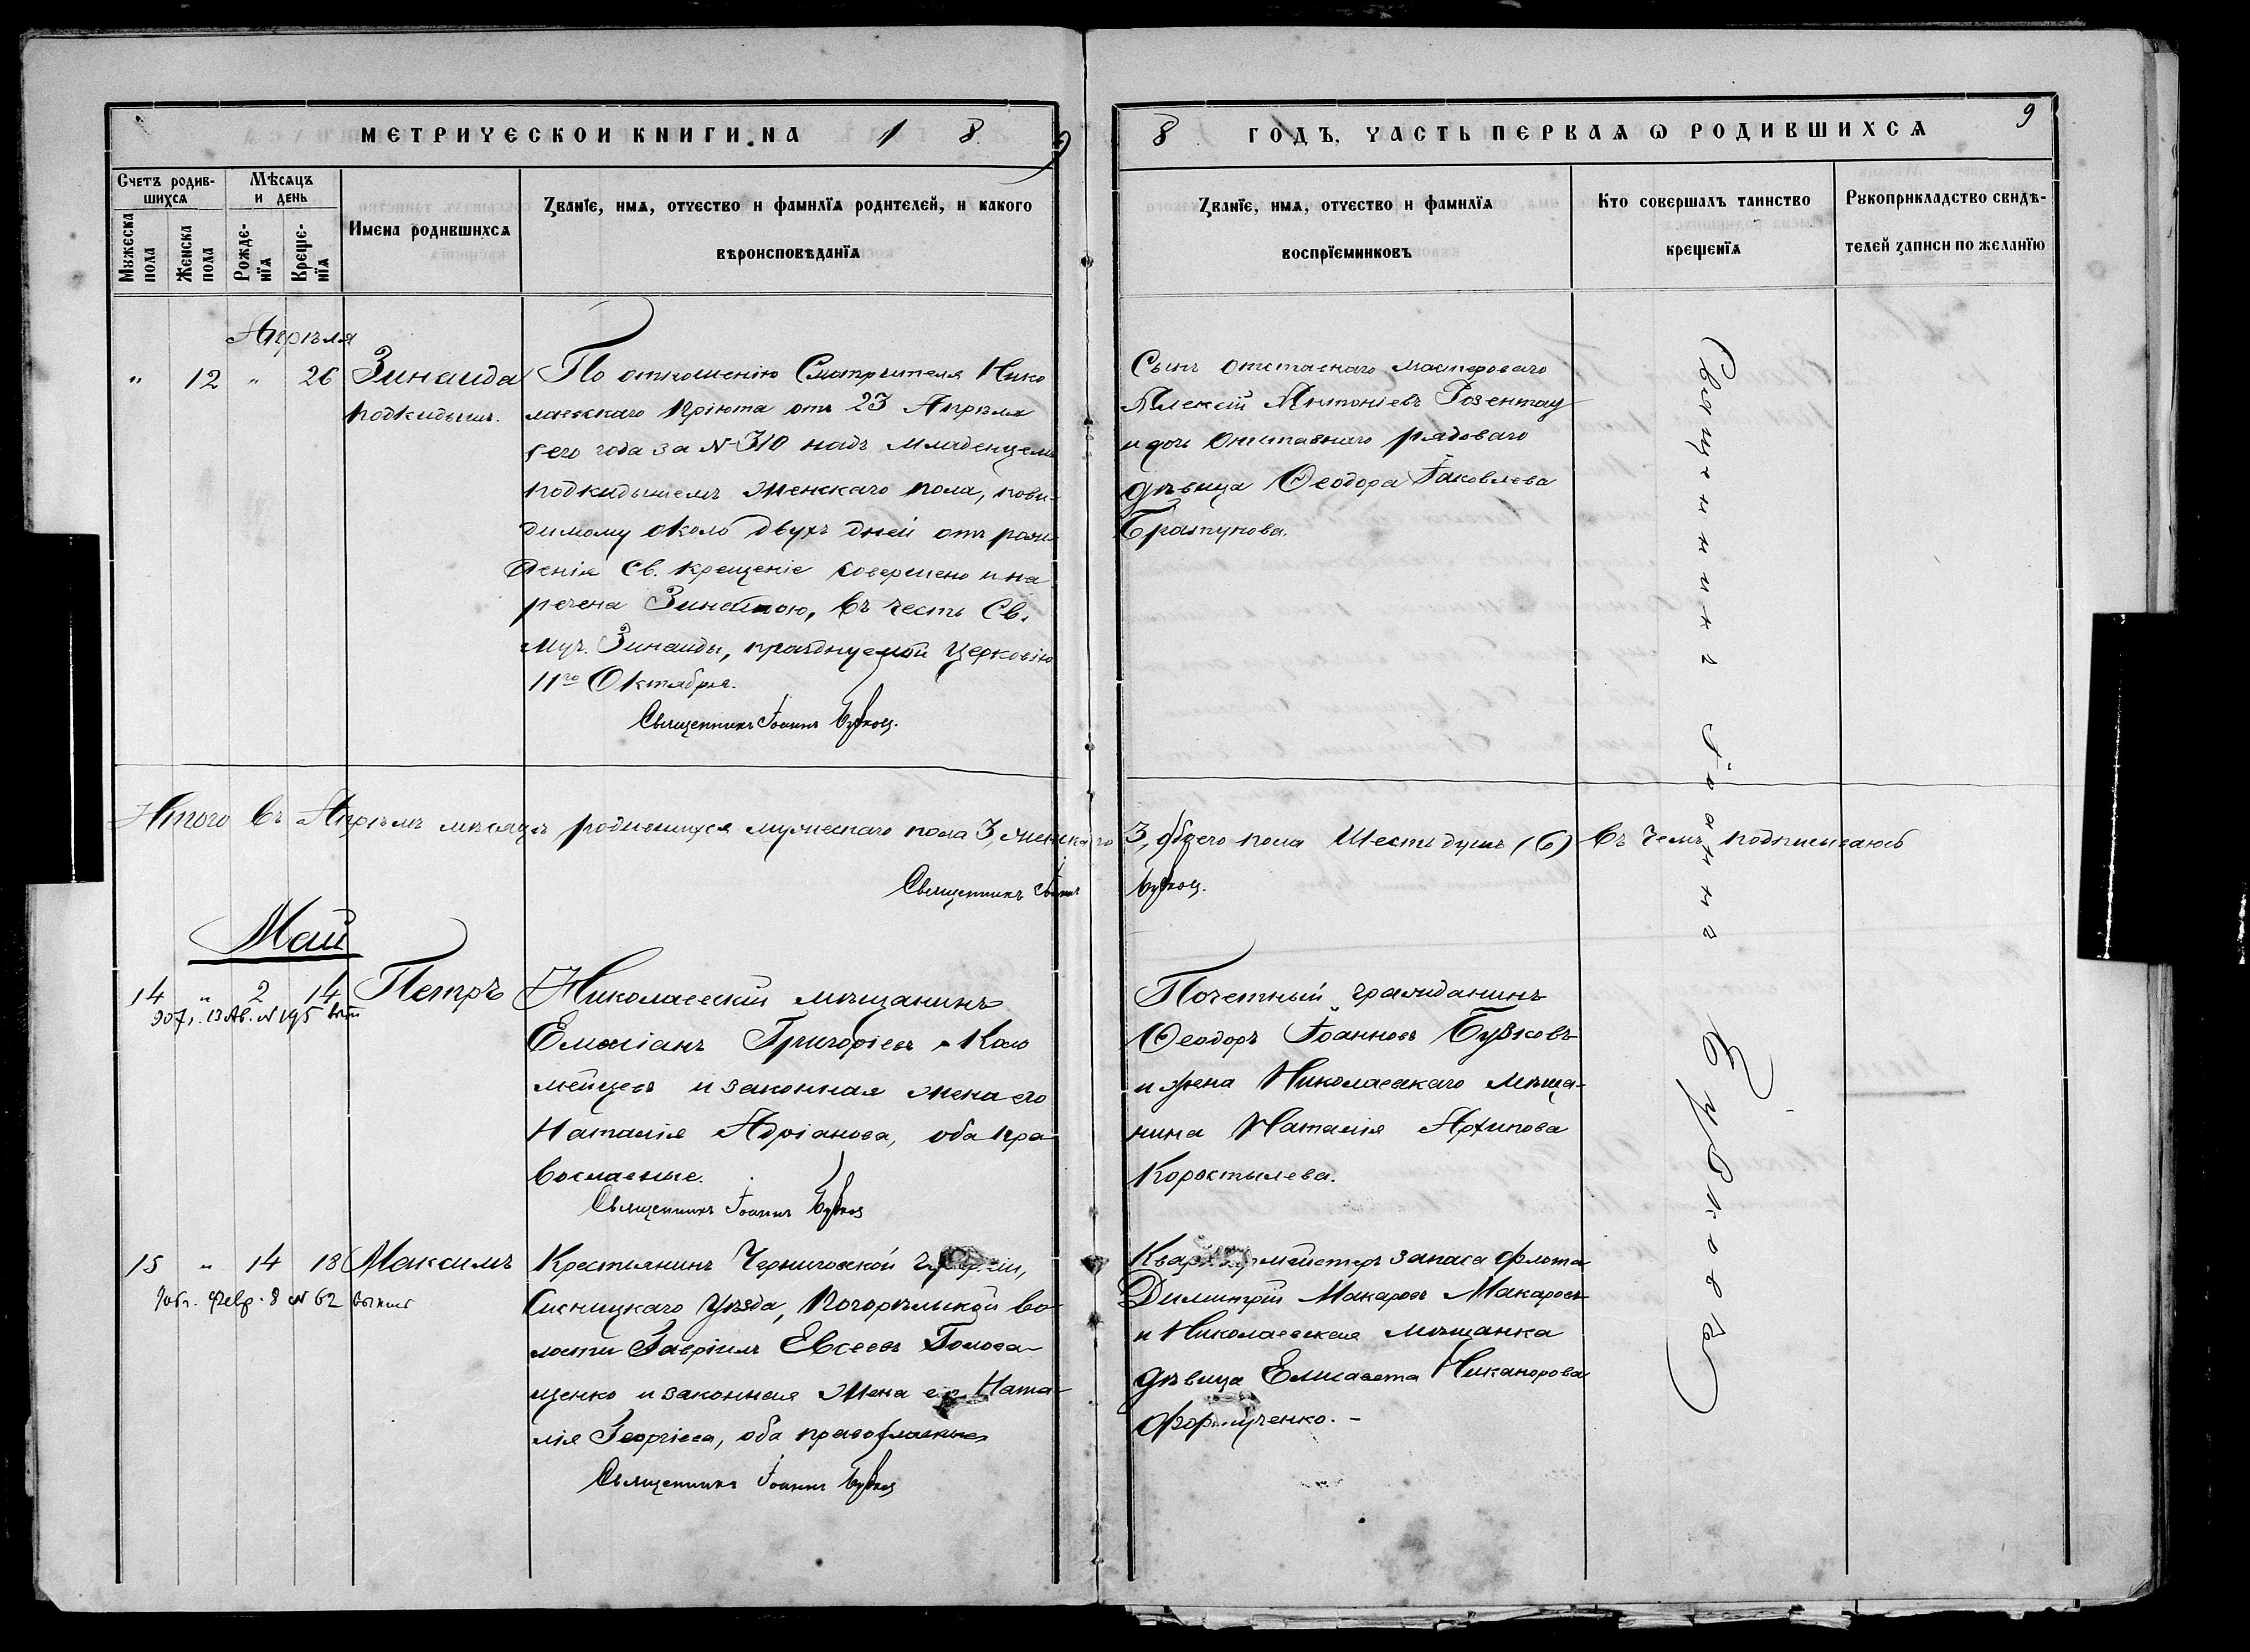 МЕТРИЧЕСКОЙ КНИГИ НА 189
8 ГОДЪ, ЧАСТЬ ПЕРВАЯ Ѡ РОДИВШИХСЯ
9
Счетъ родив-
шихся
Мѣсяцъ
и день
Мужеска
пола
Женска
пола
Рожде-
нїя
Креще-
нїя
Имена родившихся
Званїе, имя, отчество и фамилїя родителей, и какого
вѣроисповѣданїя
Званїе, имя, отчество и фамилїя
воспрїемниковъ
Кто совершалъ таинство
крещенїя
Рукоприкладство свидѣ-
телей записи по желанїю
Апрѣля
" 12 " 26
Зинаида
подкидышъ.
По отношенію Смотрителя Нико
лаевскаго Пріюта отъ 23 Апрѣля
сего года за № 310 надъ младенцемъ
подкидышемъ женскаго пола, пови-
димому около двухъ дней отъ рож-
денія Св. крещеніе совершено и на
речена Зинаидою, въ честь Св.
муч. Зинаиды, празднуемой Церковію
11го Октября.
Священникъ Іоаннъ
Сынъ отставнаго мастероваго
Алексій Антоніевъ
и дочь отставнаго рядоваго
дѣвица Ѳеодора Іаковлева
Братунова.
Священникъ Іоаннъ
Итого въ Апрѣлѣ мѣсяцѣ родившихся мужескаго пола 3, женскаго 3, обоего пола Шесть душъ (6) въ чемъ подписываюсь
Священникъ Іоаннъ
Май
14 " 2 14
907 г. 13 Ав. № 195 вып
Петръ
Николаевскій мѣщанинъ
Емиліанъ Григоріевъ Коло
мейцевъ и законная жена его
Наталія Адріанова, оба пра
вославные.
Священникъ Іоаннъ
Почетный гражданинъ
Ѳеодоръ Іоанновъ
и жена Николаевскаго мѣща-
нина Наталія Архипова
Коростылева.
15 " 14 18
Февр. 8 № 62
Максимъ
Крестьянинъ Черниговской губерніи,
Сосницкаго уѣзда, Погорѣльской во-
лости Гавріилъ Евсеевъ Голова-
щенко и законная жена его Ната-
лія Георгіева, оба православные
Священникъ Іоаннъ
Квартирмейстеръ запаса флота
Димитрій Макаровъ Макаровъ
и Николаевская мѣщанка
дѣвица Елисавета Никанорова